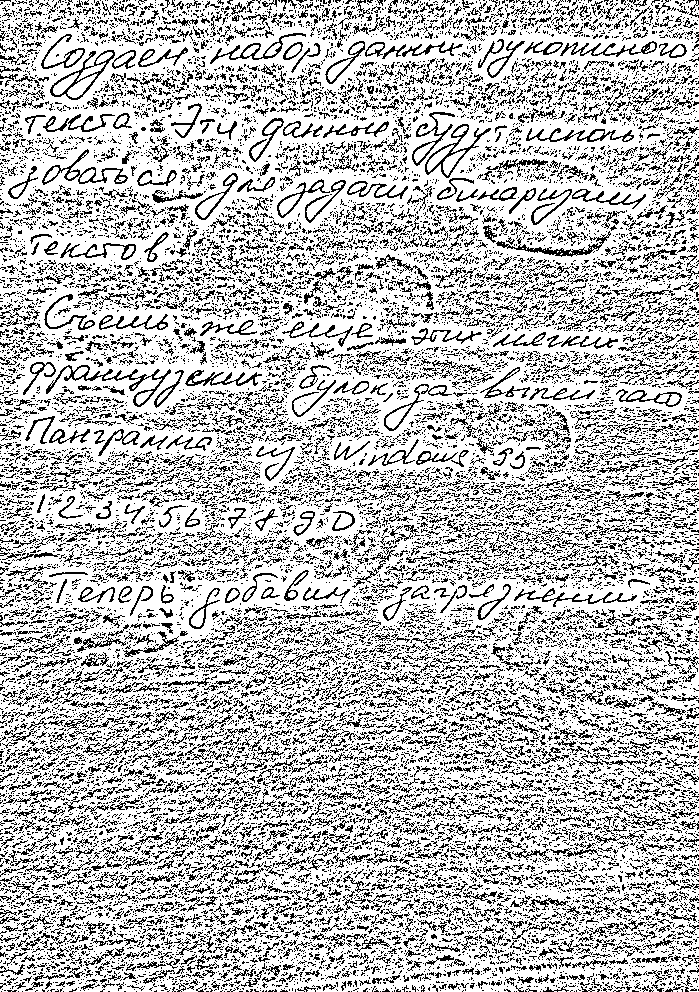 Создаем набор данных рукописного
текста. Эти данные будут исполь-
зоваться для задачи бинаризации
текстов.
Съешь же ещё этих мягких
французских булок, да выпей чаю
Панграмма из Windows 95
1 2 3 4 5 6 7 8 9 0
Теперь добавим загрязнений